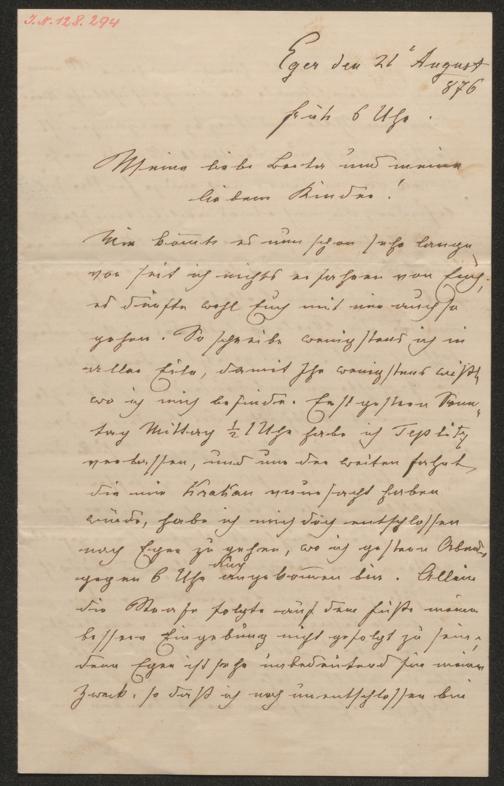 I.N. 128.294
Eger den 21 August
876
früh 6 Uhr.
Meine liebe Berta und meine
lieben Kinder!
Mir kommt es nun schon sehr lange
vor seit ich nichts erfahren von Euch,
es dürfte wohl Euch mit mir auch so
gehen. So schreibe wenigstens ich in
aller Eile, damit Ihr wenigstens wißt,
wo ich mich befinde. Erst gestern Sonn-
tag Mittag ½ 1 Uhr habe ich Teplitz
verlassen, und um der weiten Fahrt,
die mir Krakau verursacht haben
würde, habe ich mich doch entschlossen
nach Eger zu gehen, wo ich gestern Abends
gegen 6 Uhr angekommen bin. Allein
die Strafe folgte auf dem Fuße meiner
bessern Eingebung nicht gefolgt zu sein,
denn Eger ist sehr unbedeutend für meinen
Zweck, so daß ich noch unentschlossen bin